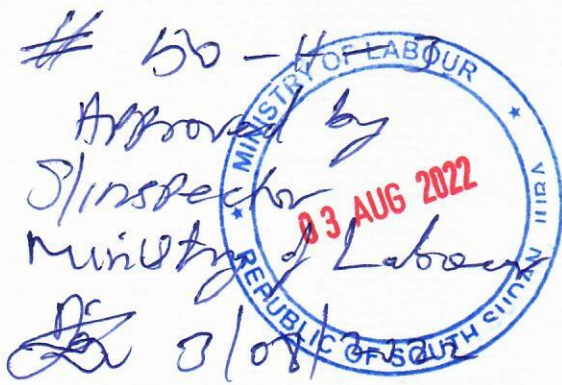 # 50 - H - 3
Approved by
S/inspector
Ministry of Labour
3/08/2022
MINISTRY OF LABOUR
03 AUG 2022
REPUBLIC OF SOUTH SUDAN